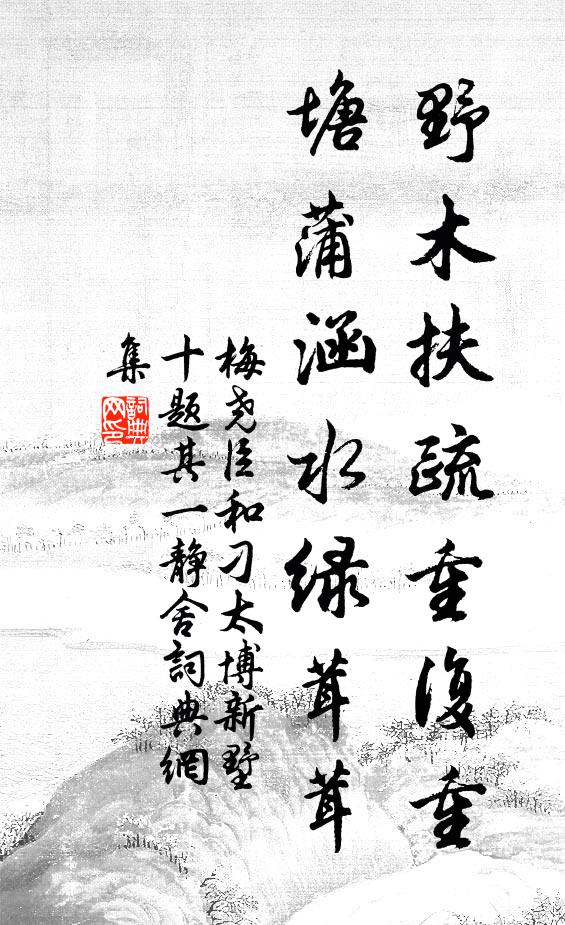 野木扶疏重復重
塘蒲涵水绿茸茸
梅尧臣和刁太博新墅
十题其一静舍詞典網
集
詞典
网印